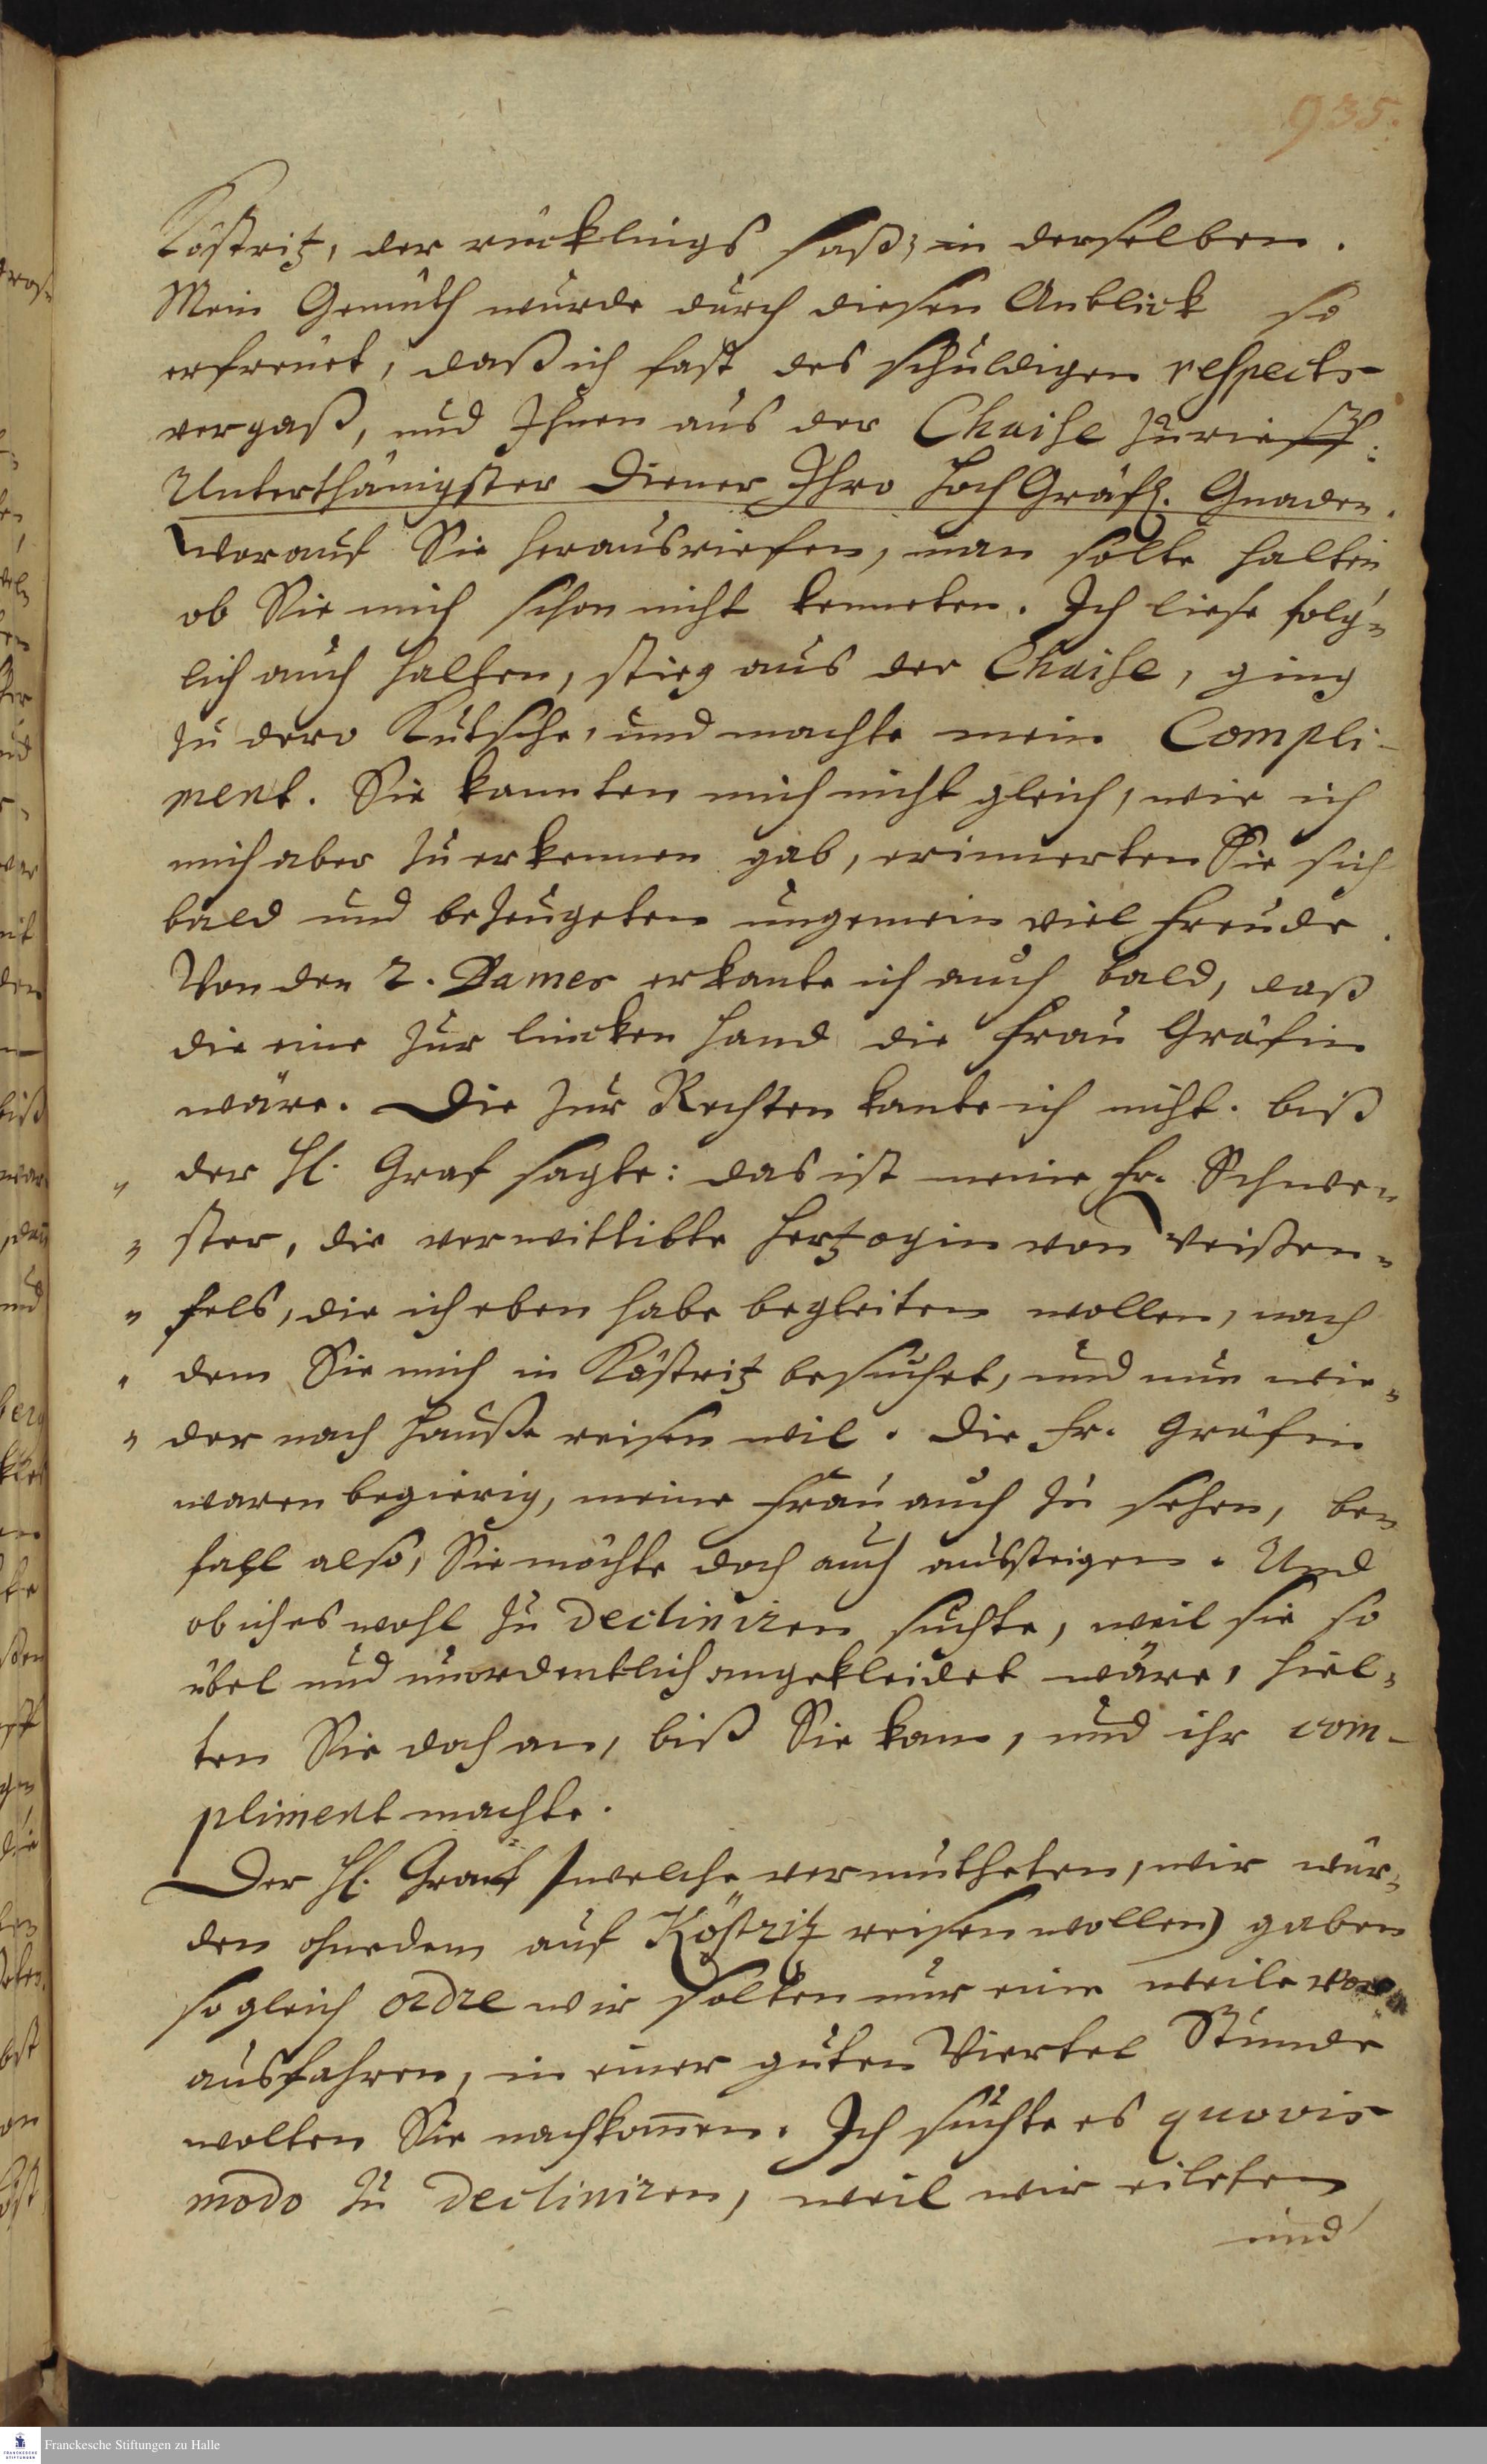 935.
Köstritz, der rücklings saß, in derselben.
Mein Gemüth wurde durch diesen Anblick so
erfreuet, daß ich fast des schuldigen respects
vergaß, und Ihnen aus der Chaise zurieff:
Unterthänigster Diener Ihro HochGräfl. Gnaden.
worauf Sie herausriefen, man solte halten
ob Sie mich schon nicht kenneten. Ich liese folg-
lich auch halten, stieg aus der Chaise, ging
zu dero Kutsche, und machte mein Compli-
ment. Sie kannten mich nicht gleich, wie ich
mich aber zu erkennen gab, erinnerten Sie sich
bald und bezeugeten ungemein viel Freude.
Von den 2. Dames erkante ich auch bald, daß
die eine zur lincken Hand die Frau Gräfin
wäre. Die zur Rechten kante ich nicht. biß
" der H. Graf sagte: das ist meine Fr. Schwe-
" ster, die verwittibte Hertzogin von Weißen-
" fels, die ich eben habe begleiten wollen, nach
" dem Sie mich in Köstritz besuchet, und nun wie-
" der nach Hauße reisen wil. Die Fr. Gräfin
waren begierig, meine Frau auch zu sehen, be-
fahl also, Sie möchte doch auch aussteigen. Und
ob ich es wohl zu decliniren suchte, weil sie so
übel und unordentlich angekleidet wäre, hiel-
ten Sie doch an, biß Sie kam, und ihr com-
pliment machte.
Der H. Graf (welche vermutheten, wir wür-
den ohnedem auf Köstritz reisen wollen) gaben
so gleich ordre wir solten nur eine weile vor
ausfahren, in einer guten Viertel Stunde
wolten Sie nachkom̄en. Ich suchte es quovis
modo zu decliniren, weil wir eileten
und
Franckesche Stiftungen zu Halle